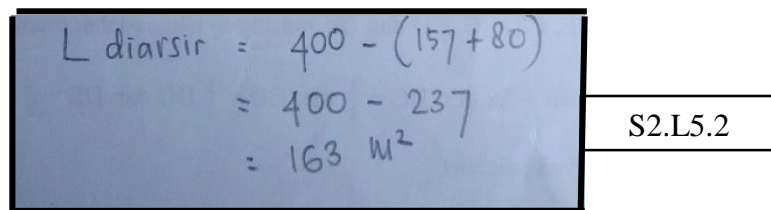 L diarsir = 400 - (157 + 80)
= 400 - 237
= 163 m²
S2.L5.2